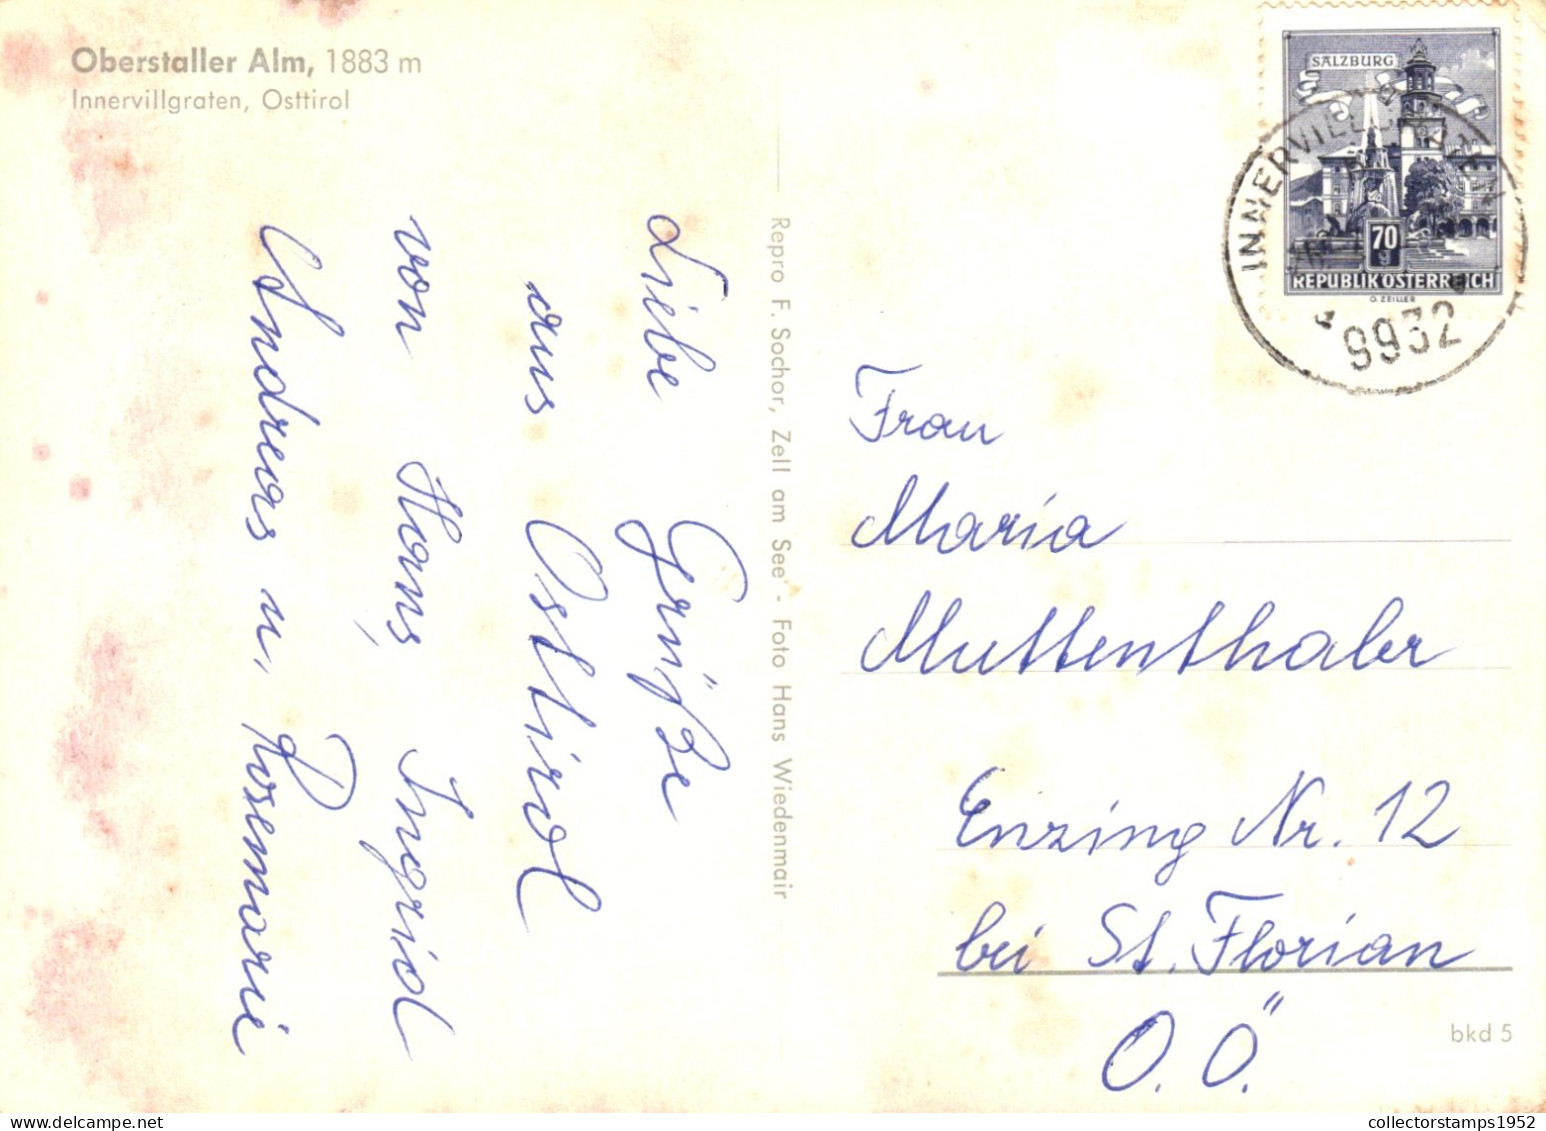 Oberstaller Alm, 1883 m
Innervillgraten, Osttirol
Liebe Grüße
aus Osttirol
von Hans, Ingrid
Andreas u. Rosemarie
Repro F. Sochor, Zell am See - Foto Hans Wiedenmair
SALZBURG
70
g
REPUBLIK ÖSTERREICH
O. ZEILLER
INNERVILLGRATEN
9932
Frau
Maria
Muttenthaler
Enzing Nr. 12
bei St. Florian
O.Ö.
bkd 5
collectorstamps1952